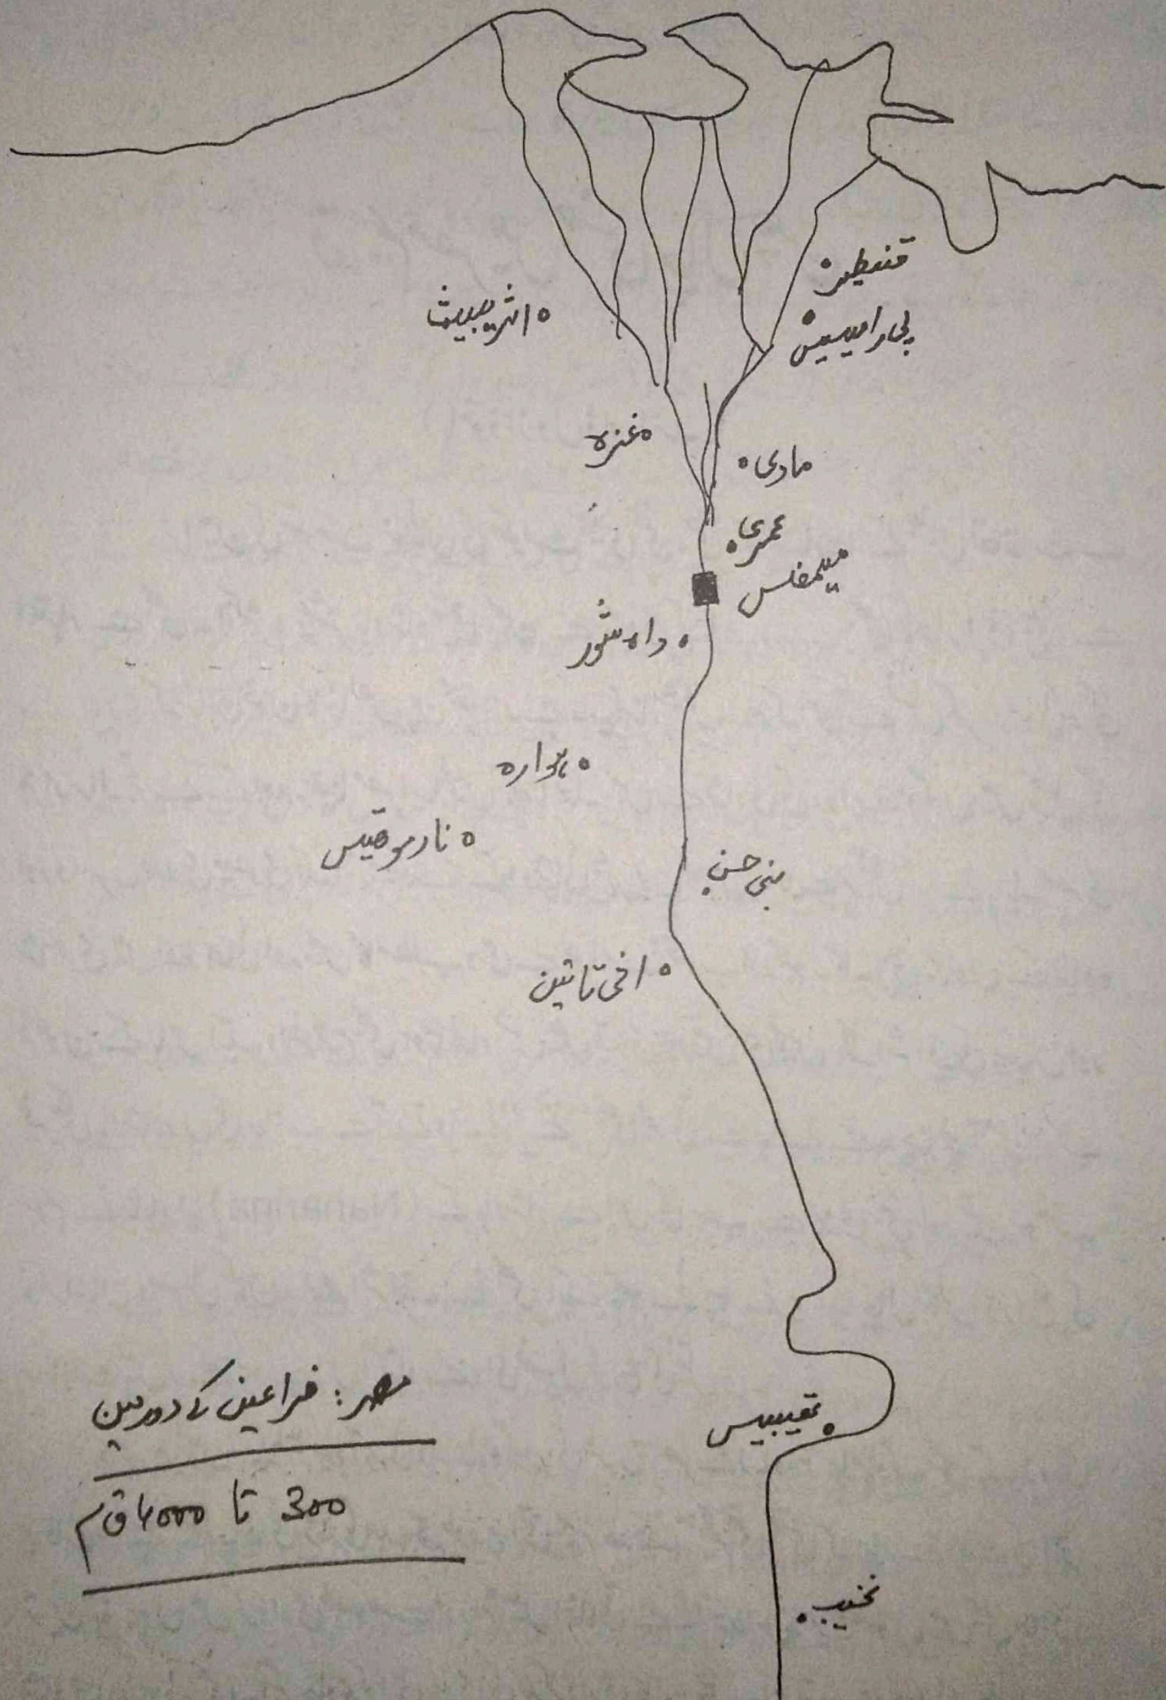 قنطیر
پی رامیسیس
اثریبیث
غزہ
مادی
عمری
میمفس
داہ شور
ہوارہ
نارموقیس
بنی حسن
اخی تاتین
تھیبیس
نخیب
مصر: فراعین کے دور میں
300 تا 4000 ق م